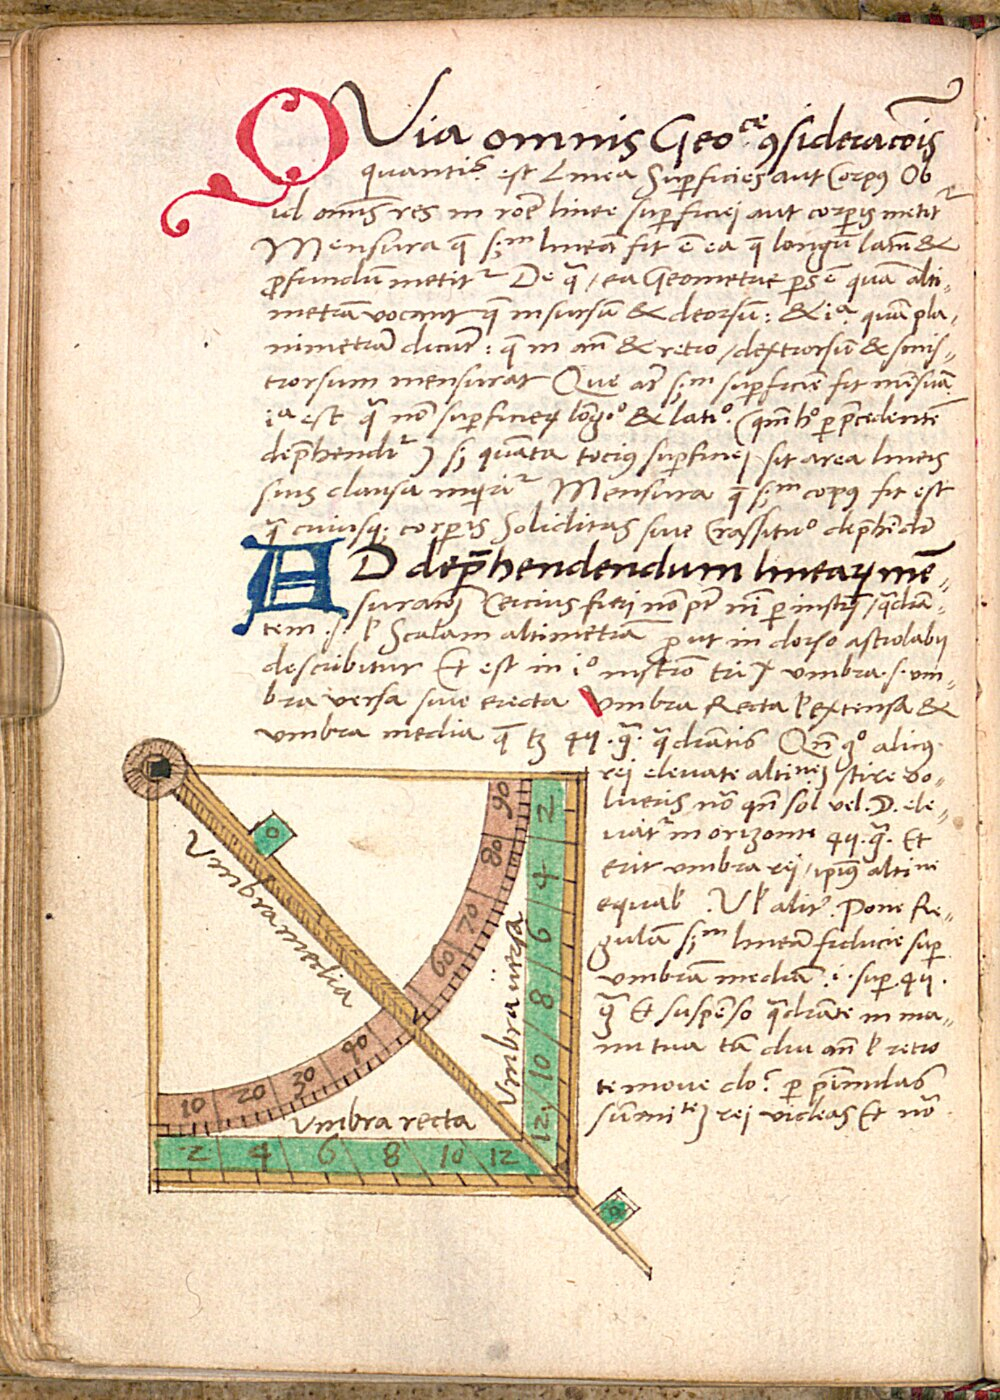 QVia omnis Geo.ce ꝯsideracōis
quantis. est Linea Superficies aut Corpus Ob
id omīs res in rōe linee superficiei aut corporis metitr
Mensura q̄ s;m lineā fit ē ea q̄ longū latū &
profundū metitr De q̄ / ea Geometrie pars ē quā alti„
metrā vocant q̄ in sursū & deorsū : & ia. quā pla„
nimetrā dicūt : q̄ in añ & retro / dextrorsū & sinis„
trorsum mensurat Que at s;m superficiē fit mēsurā
ia est q̄ nō superficieꝝ lōgo & lato. (qm̄ ho p p̄cedentē
dep̄hendir) s; quanta tocius superficiei sit area lineis
suis clausa inqirir Mensura q̄ s;m copus fit est
q̄ cuiusq; corporis Soliditas siue Crassituo dep̄hēdit
AD dep̄hendendum linearꝫ mē„
surā Cercius fieri nō pt nī p instrm̄ / q̄drā„
tem .s. l' Scalam altimetrā prout in dorso astrolabij
describitur Et est in io instrō trix vmbra .s. vm„
bra versa siue erecta Vmbra Recta l' extensa &
vmbra media q̄ tʒ 45 .g. q̄drantis Qn̄ go alicꝰ
rei eleuate altinē scire vo„
lueris nō qn̄ sol vel .D. ele„
uatr in orizonte 45 .g. Et
erit vmbra rei / ipiꝰ altini
equal' . Vl' alitr . Pone Re„
gulā s;m lineā fiducie sup
vmbrā mediā .i. sup 45 .
g Et suspēso q̄drāte in ma„
nu tua tā diu añ l' retro
te moue do. p pīnulas
sūmite rei videas Et nō
Vmbra media
Vmbra versa
Vmbra recta
10 20 30 40 60 70 80 90
2 4 6 8 10 12
2 4 6 8 10 12